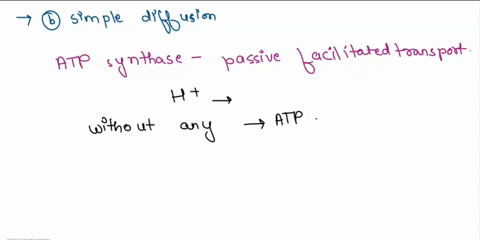 → ⓑ simple diffusion
ATP synthase - passive facilitated transport.
H+ →
without any → ATP .